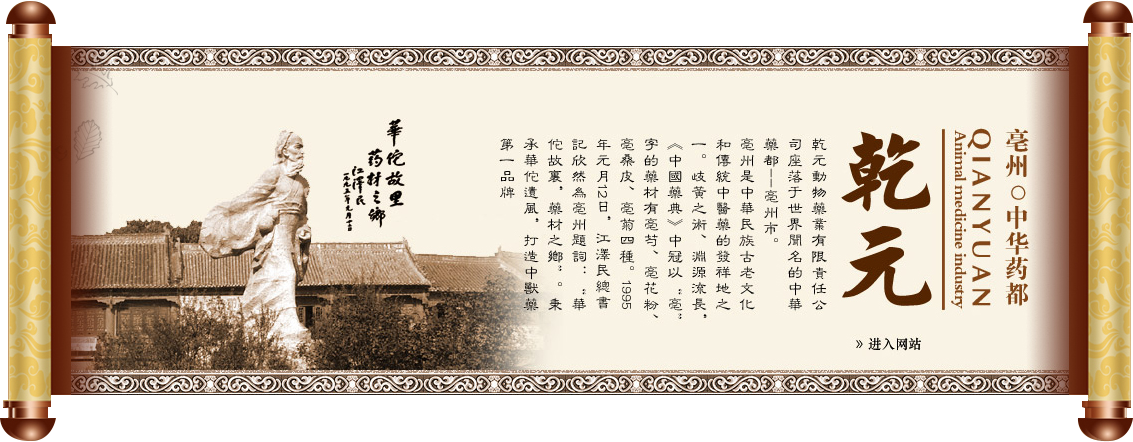 亳州○中华药都
QIANYUAN
Animal medicine industry
乾元
乾元動物藥業有限責任公
司座落于世界聞名的中華
藥都——亳州市。
亳州是中華民族古老文化
和傳統中醫藥的發祥地之
一。歧黃之術、淵源流長,
《中國藥典》中冠以“亳”
字的藥材有亳芍、亳花粉、
亳桑皮、亳菊四種。1995
年元月12日,江澤民總書
記欣然為亳州題詞:“華
佗故裏,藥材之鄉”。秉
承華佗遺風,打造中獸藥
第一品牌
» 进入网站
華佗故里
药材之鄉
江澤民